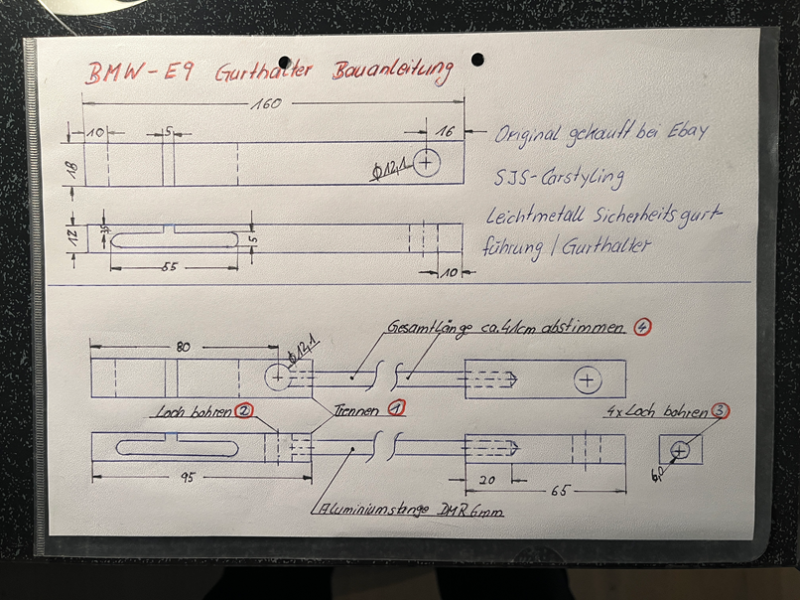 BMW-E9 Gurthalter Bauanleitung
160
10 5 16
Original gekauft bei Ebay
18
Ø12,1
SJS-Carstyling
Leichtmetall Sicherheitsgurt-
12
5
führung / Gurthalter
55
10
Gesamtlänge ca. 41cm abstimmen 4
80
Ø12,1
Loch bohren 2
Trennen 1
4x Loch bohren 3
6,0
95
20
65
Aluminiumstange DMR 6mm